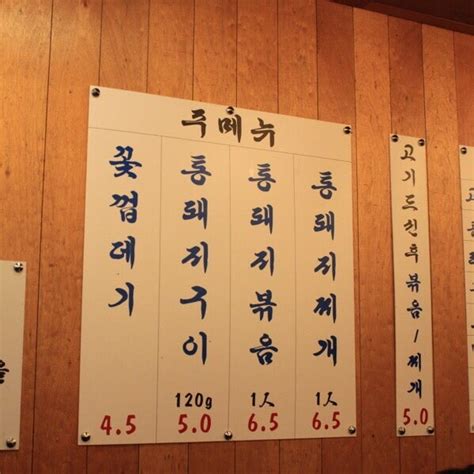 주메뉴
꽃껍데기
4.5
통돼지구이
120g
5.0
통돼지볶음
1人
6.5
통돼지찌개
1人
6.5
고기드신후볶음/찌개
5.0
을